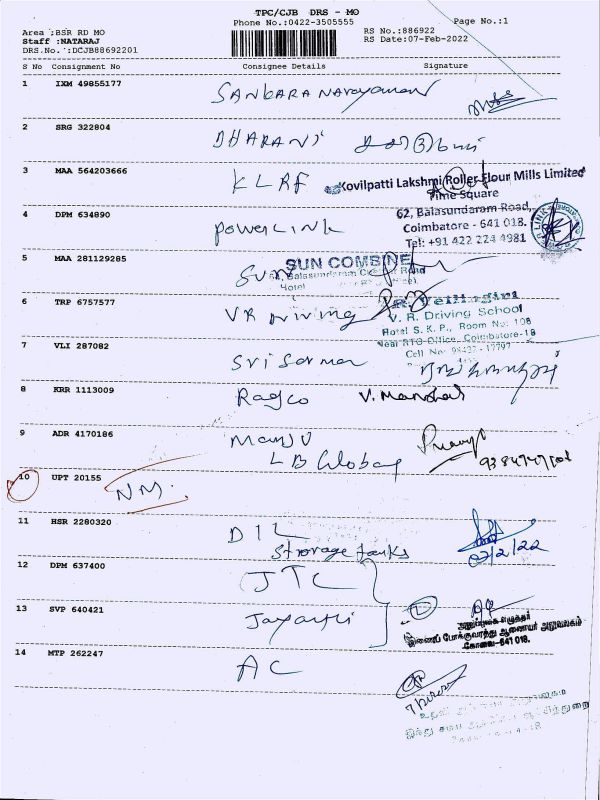 TPC/CJB DRS - MO
Phone No.:0422-3505555
Page No.:1
Area :BSR RD MO
Staff :NATARAJ
DRS.No.:DCJB88692201
RS No.:886922
RS Date:07-Feb-2022
S No Consignment No Consignee Details Signature
1 IXM 49855177 SANKARANARAYANAN
2 SRG 322804 DHARANI
3 MAA 564203666 KLRF
Kovilpatti Lakshmi Roller Flour Mills Limited
Time Square
62, Balasundaram Road,
Coimbatore - 641 018.
Tel: +91 422 224 4981
4 DPM 634890 POWERLINK
5 MAA 281129285 SUN
SUN COMBINE
Balasundaram Road
Hotel
6 TRP 6757577 VR Driving
V. R. Driving School
Hotel S. K. P., Room No: 108
Near RTO Office, Coimbatore-18
Cell No
7 VLI 287082 Sri
8 KRR 1113009 Ragco V. Manohar
9 ADR 4170186 Manju
LB Global
10 UPT 20155 NM.
11 HSR 2280320 DIL
Storage tanks
07/2/22
12 DPM 637400 JTC
13 SVP 640421
இணைப் போக்குவரத்து ஆணையர் அலுவலகம்
கோவை-641 018.
14 MTP 262247 AC